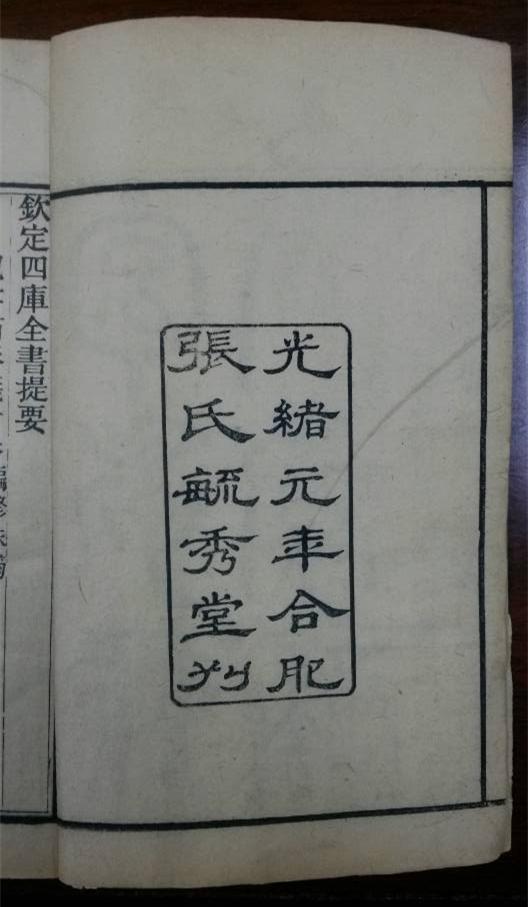 光緒元年合肥
張氏毓秀堂刋
欽定四庫全書提要